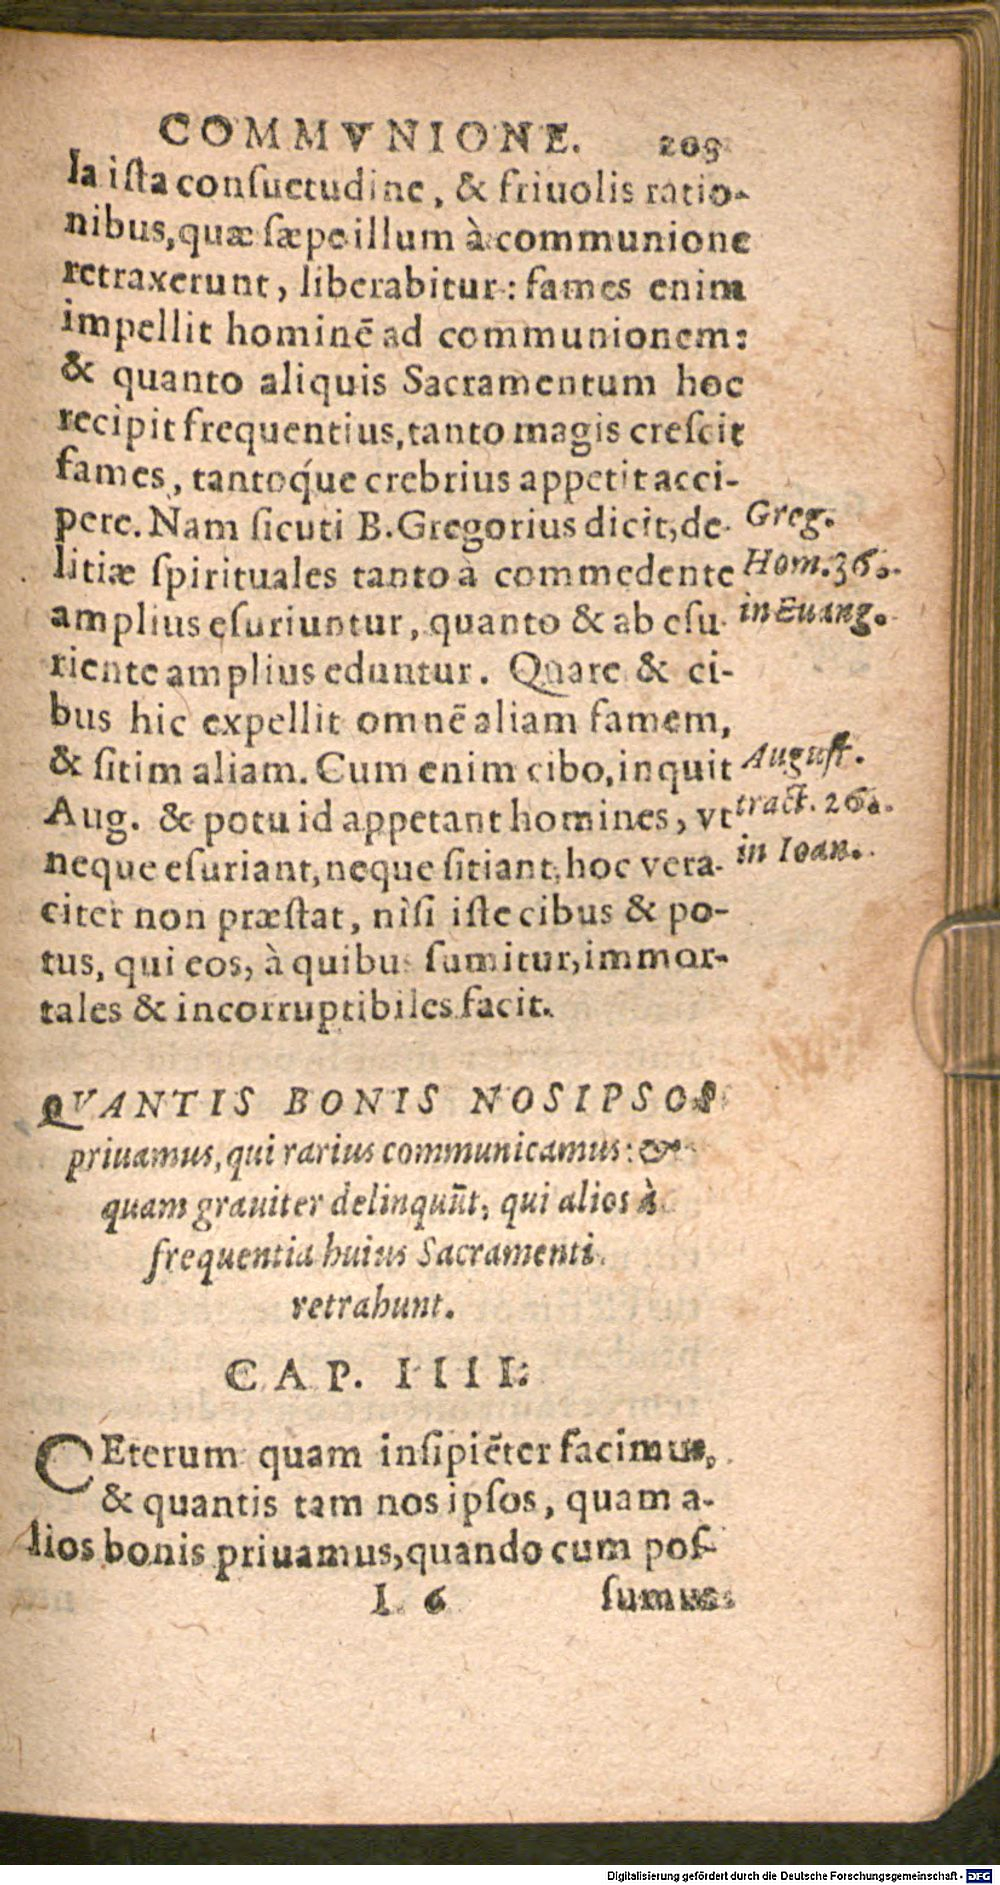 COMMVNIONE. 209
la ista consuetudine, & friuolis ratio-
nibus, quæ sæpe illum à communione
retraxerunt, liberabitur: fames enim
impellit hominē ad communionem:
& quanto aliquis Sacramentum hoc
recipit frequentius, tanto magis crescit
fames, tantoq́ue crebrius appetit acci-
pere. Nam sicuti B. Gregorius dicit, de-
litiæ spirituales tanto à commedente
amplius esuriuntur, quanto & ab esu-
riente amplius eduntur. Quare & ci-
bus hic expellit omnē aliam famem,
& sitim aliam. Cum enim cibo, inquit
Aug. & potu id appetant homines, vt
neque esuriant, neque sitiant, hoc vera-
citer non præstat, nisi iste cibus & po-
tus, qui eos, à quibus sumitur, immor-
tales & incorruptibiles facit.
Greg.
Hom. 36.
in Euang.
August.
tract. 26.
in Ioan.
QVANTIS BONIS NOSIPSOS
priuamus, qui rarius communicamus: &
quam grauiter delinquūt, qui alios à
frequentia huius Sacramenti
retrahunt.
CAP. IIII.
CEterum quam insipiēter facimus,
& quantis tam nos ipsos, quam a-
lios bonis priuamus, quando cum pos-
I 6 sumus
Digitalisierung gefördert durch die Deutsche Forschungsgemeinschaft - DFG